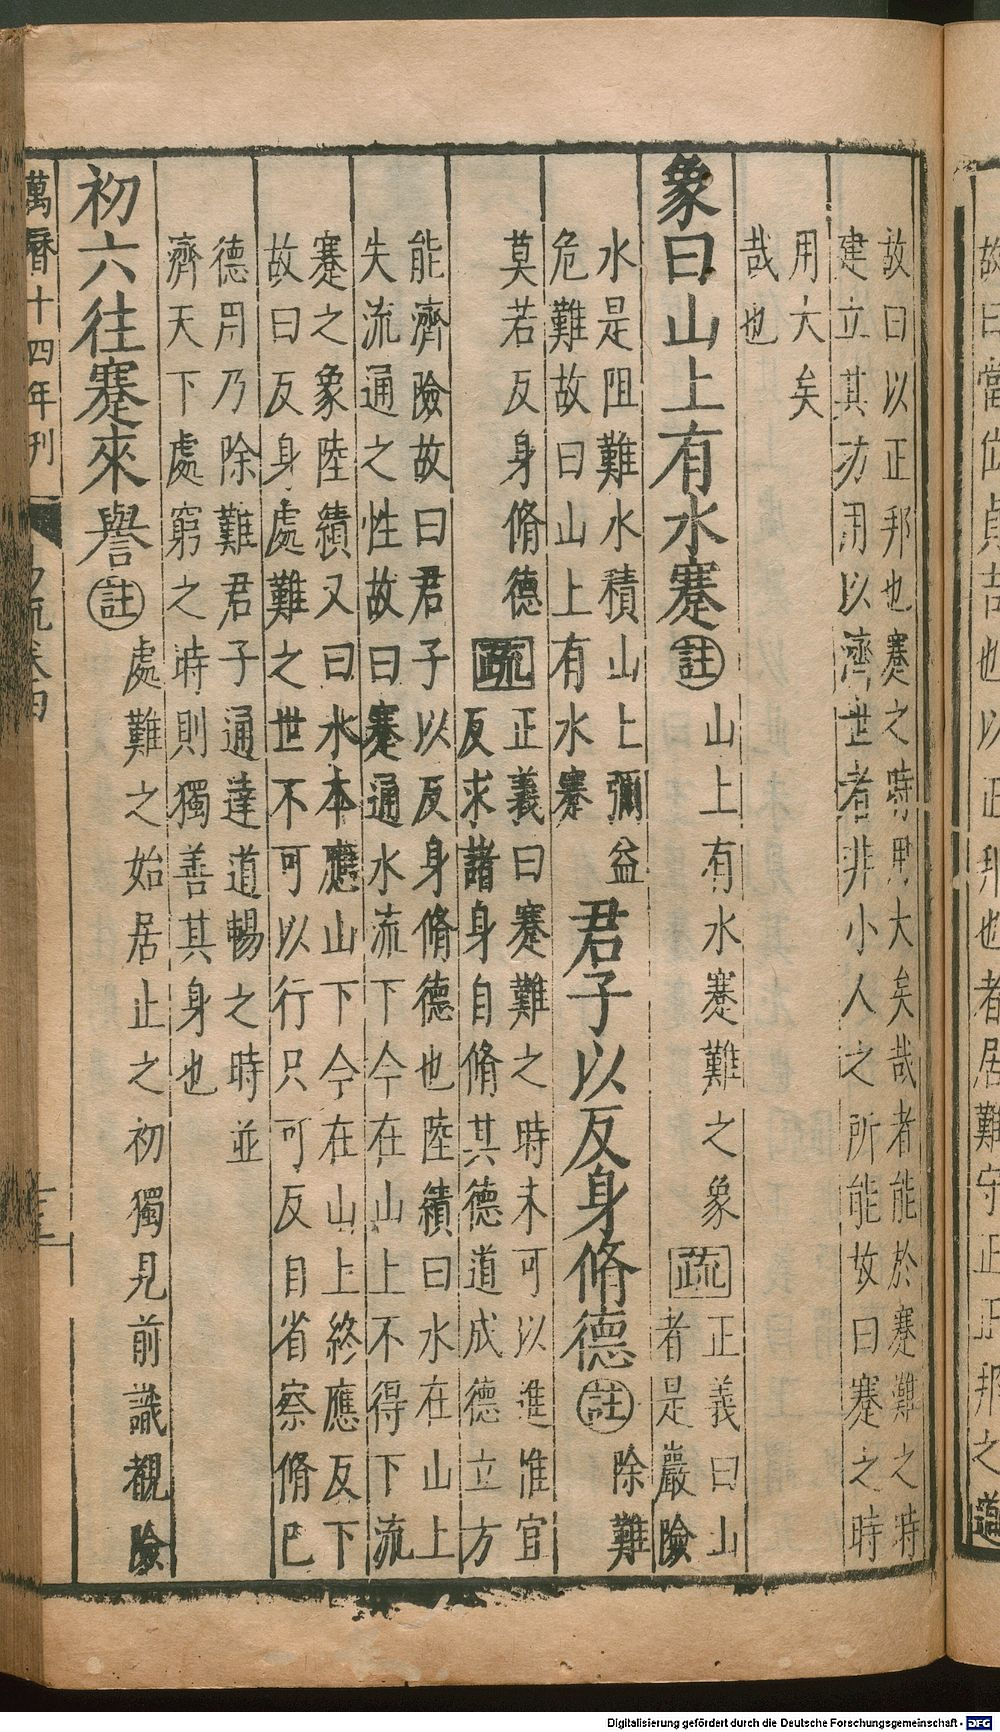 故曰當位貞吉也以正邦也者居難守正正邦之道
故曰以正邦也蹇之時用大矣哉者能於蹇難之時
建立其功用以濟世者非小人之所能故曰蹇之時
用大矣
哉也
象曰山上有水蹇註山上有水蹇難之象疏正義曰山
者是巖險
水是阻難水積山上彌益
危難故曰山上有水蹇
君子以反身脩德註除難
莫若反身脩德疏正義曰蹇難之時未可以進惟宜
反求諸身自脩其德道成德立方
能濟險故曰君子以反身脩德也陸績曰水在山上
失流通之性故曰蹇通水流下今在山上不得下流
蹇之象陸績又曰水本應山下今在山上終應反下
故曰反身處難之世不可以行只可反自省察脩已
德用乃除難君子通達道暢之時並
濟天下處窮之時則獨善其身也
初六往蹇來譽註處難之始居止之初獨見前識覩險
萬曆十四年刊
Digitalisierung gefördert durch die Deutsche Forschungsgemeinschaft - DFG